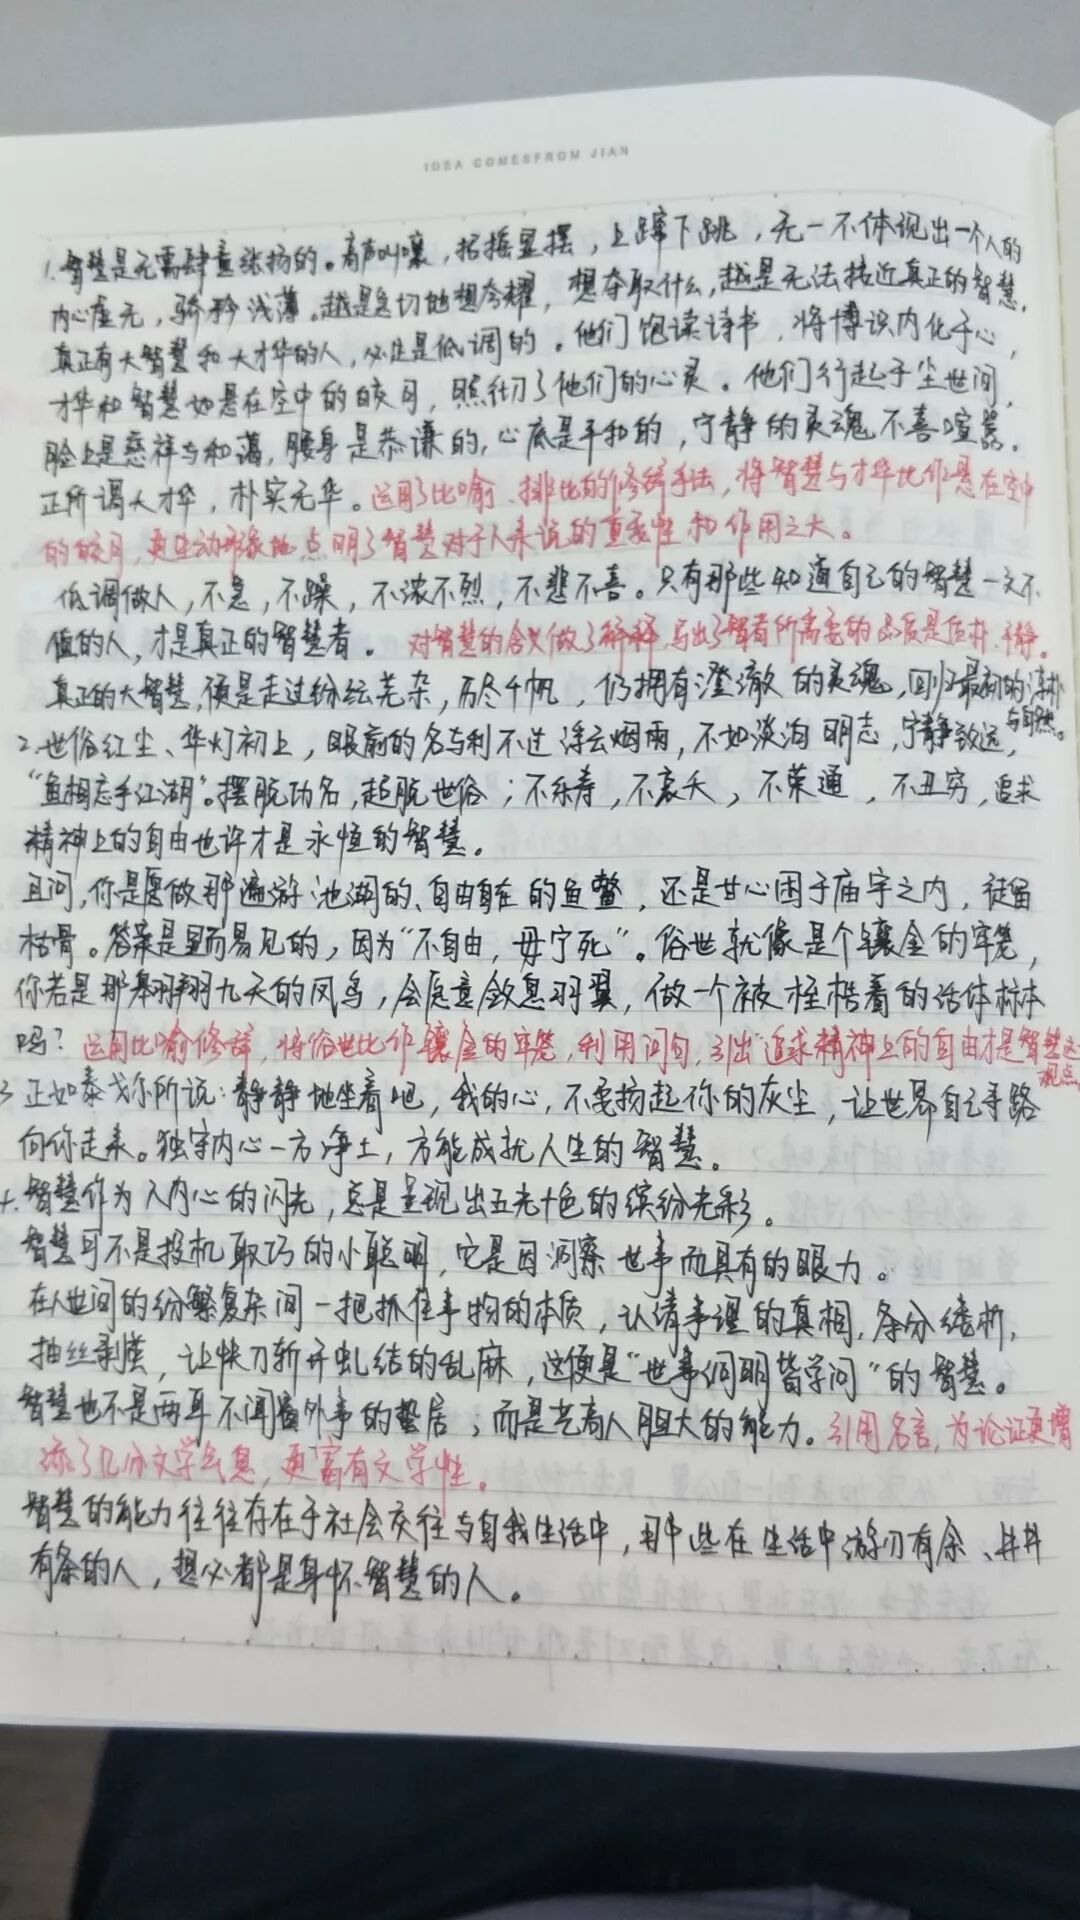 IDEA COMESFROM JIAN
1.智慧是无需肆意张扬的。高声叫嚷，招摇显摆，上蹿下跳，无一不体现出一个人的
内心虚无，骄矜浅薄。越是急切地想夸耀，想夺取什么，越是无法接近真正的智慧。
真正有大智慧和大才华的人，必定是低调的。他们饱读诗书，将博识内化于心，
才华和智慧如悬在空中的皎月，照彻了他们的心灵。他们行起于尘世间，
脸上是慈祥与和蔼，腰身是恭谦的，心底是平和的，宁静的灵魂不喜喧嚣。
正所谓大才华，朴实无华。运用了比喻、排比的修辞手法，将智慧与才华比作悬在空中
的皎月，更生动形象地点明了智慧对于人来说的重要性和作用之大。
低调做人，不急，不躁，不浓不烈，不悲不喜。只有那些知道自己的智慧一文不
值的人，才是真正的智慧者。对智慧的含义做了解释，写出了智者所需要的品质是质朴、平静。
真正的大智慧，便是走过纷纭芜杂，历尽千帆，仍拥有澄澈的灵魂，回归最初的淳朴
与自然。
2.世俗红尘、华灯初上，眼前的名与利不过浮云烟雨，不如淡泊明志，宁静致远，
“鱼相忘乎江湖”。摆脱功名，超脱世俗；不乐寿，不哀夭，不荣通，不丑穷，追求
精神上的自由也许才是永恒的智慧。
且问，你是愿做那遍游池湖的、自由自在的鱼鳖，还是甘心困于庙宇之内，徒留
枯骨。答案是显而易见的，因为“不自由，毋宁死”。俗世就像是个镶金的牢笼，
你若是那翱翔九天的凤鸟，会愿意敛息羽翼，做一个被桎梏着的活体标本
吗？运用比喻修辞，将俗世比作镶金的牢笼，利用问句，引出“追求精神上的自由才是智慧这一
观点。
3.正如泰戈尔所说：静静地坐着吧，我的心，不要扬起你的灰尘，让世界自己寻路
向你走来。独守内心一方净土，方能成就人生的智慧。
4.智慧作为人内心的闪光，总是呈现出五光十色的缤纷光彩。
智慧可不是投机取巧的小聪明，它是因洞察世事而具有的眼力。
在人世间的纷繁复杂间一把抓住事物的本质，认清事理的真相，条分缕析，
抽丝剥茧，让快刀斩开虬结的乱麻，这便是“世事洞明皆学问”的智慧。
智慧也不是两耳不闻窗外事的蛰居；而是艺高人胆大的能力。引用名言，为论证更增
添了几分文学气息，更富有文学性。
智慧的能力往往存在于社会交往与自我生活中，那些在生活中游刃有余、井井
有条的人，想必都是身怀智慧的人。